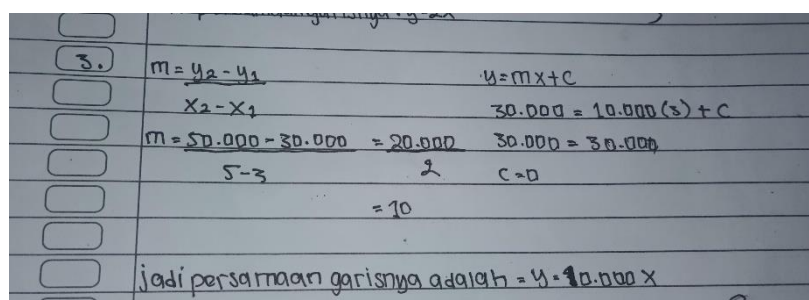 3.
m = y2 - y1
x2 - x1
m = 50.000 - 30.000 = 20.000
5-3 2
= 10
y = mx + c
30.000 = 10.000 (3) + c
30.000 = 30.000
c = 0
jadi persamaan garisnya adalah = y = 10.000 x